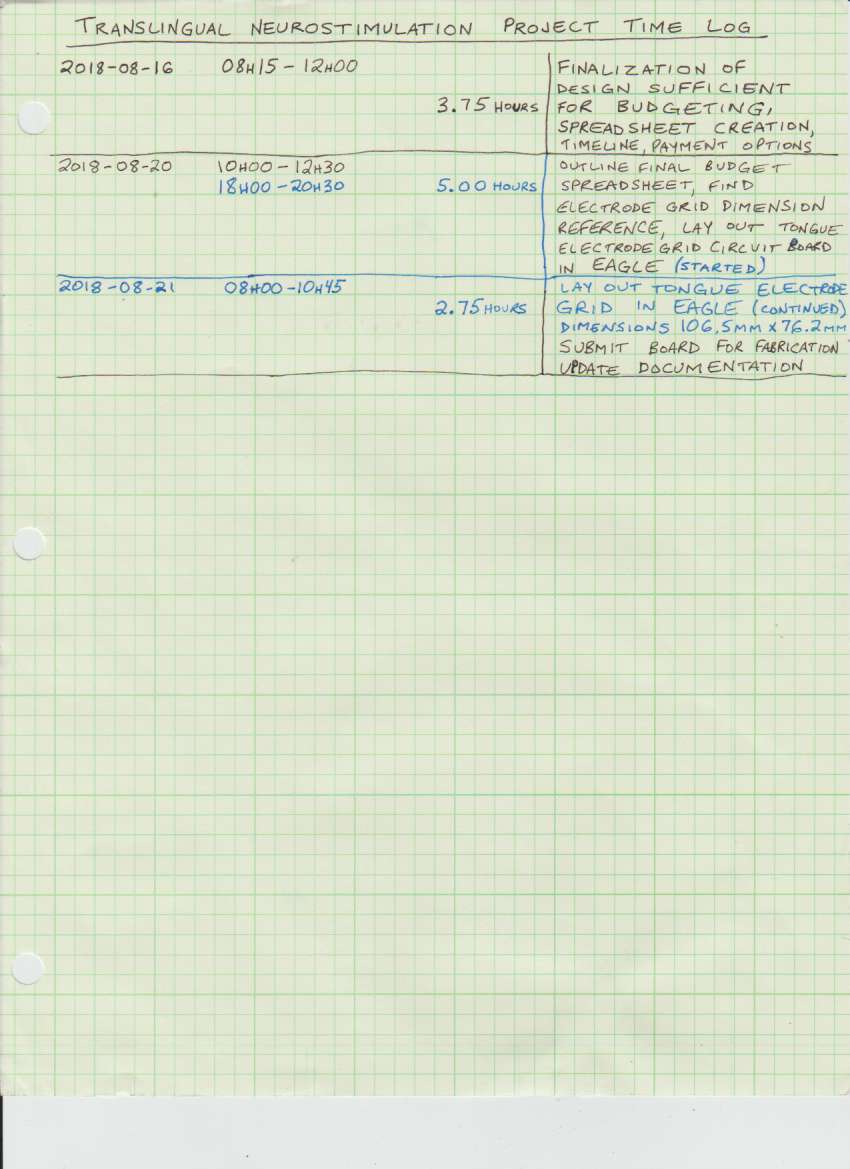 TRANSLINGUAL NEUROSTIMULATION PROJECT TIME LOG
2018-08-16 08H15-12H00 FINALIZATION OF
DESIGN SUFFICIENT
3.75 HOURS FOR BUDGETING,
SPREADSHEET CREATION,
TIMELINE, PAYMENT OPTIONS
2018-08-20 10H00-12H30 OUTLINE FINAL BUDGET
18H00-20H30 5.00 HOURS SPREADSHEET, FIND
ELECTRODE GRID DIMENSION
REFERENCE, LAY OUT TONGUE
ELECTRODE GRID CIRCUIT BOARD
IN EAGLE (STARTED)
2018-08-21 08H00-10H45 LAY OUT TONGUE ELECTRODE
2.75 HOURS GRID IN EAGLE (CONTINUED)
DIMENSIONS 106.5MM X 76.2MM
SUBMIT BOARD FOR FABRICATION
UPDATE DOCUMENTATION